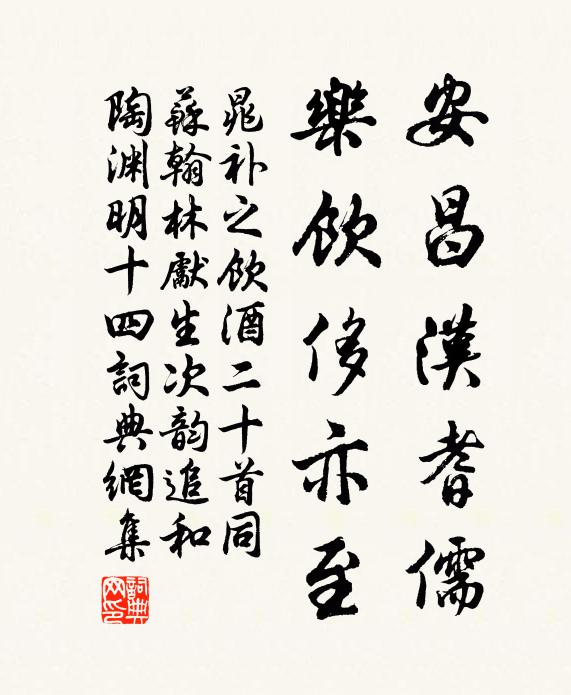 安昌漢耆儒
樂飲侈亦至
晁补之飲酒二十首同
蘇翰林獻生次韵追和
陶渊明十四詞典網集
詞典
网印